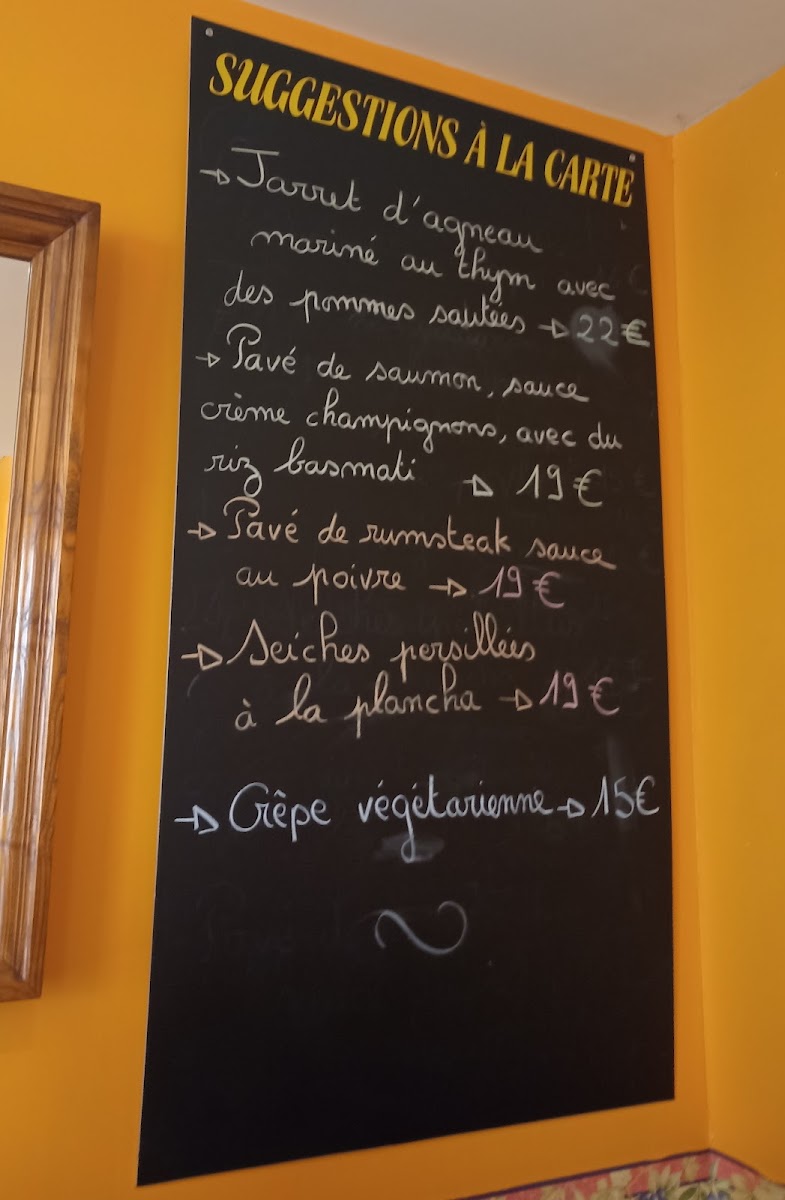 SUGGESTIONS À LA CARTE
→ Jarret d'agneau
mariné au thym avec
des pommes sautées → 22€
→ Pavé de saumon, sauce
crème champignons, avec du
riz basmati → 19€
→ Pavé de rumsteak sauce
au poivre → 19€
→ Seiches persillées
à la plancha → 19€
→ Crêpe végétarienne → 15€